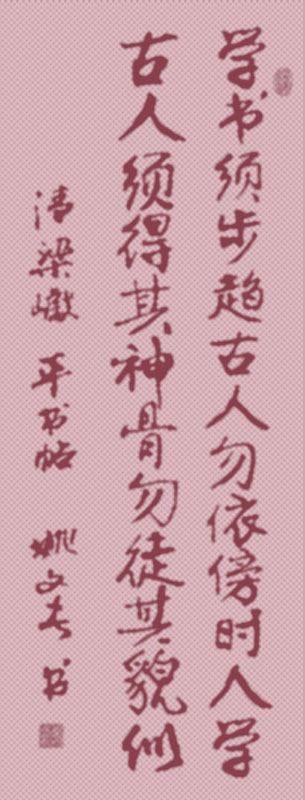 学书须步趋古人勿依傍时人学
古人须得其神骨勿徒其貌似
清梁巘 平书帖 姚文 书